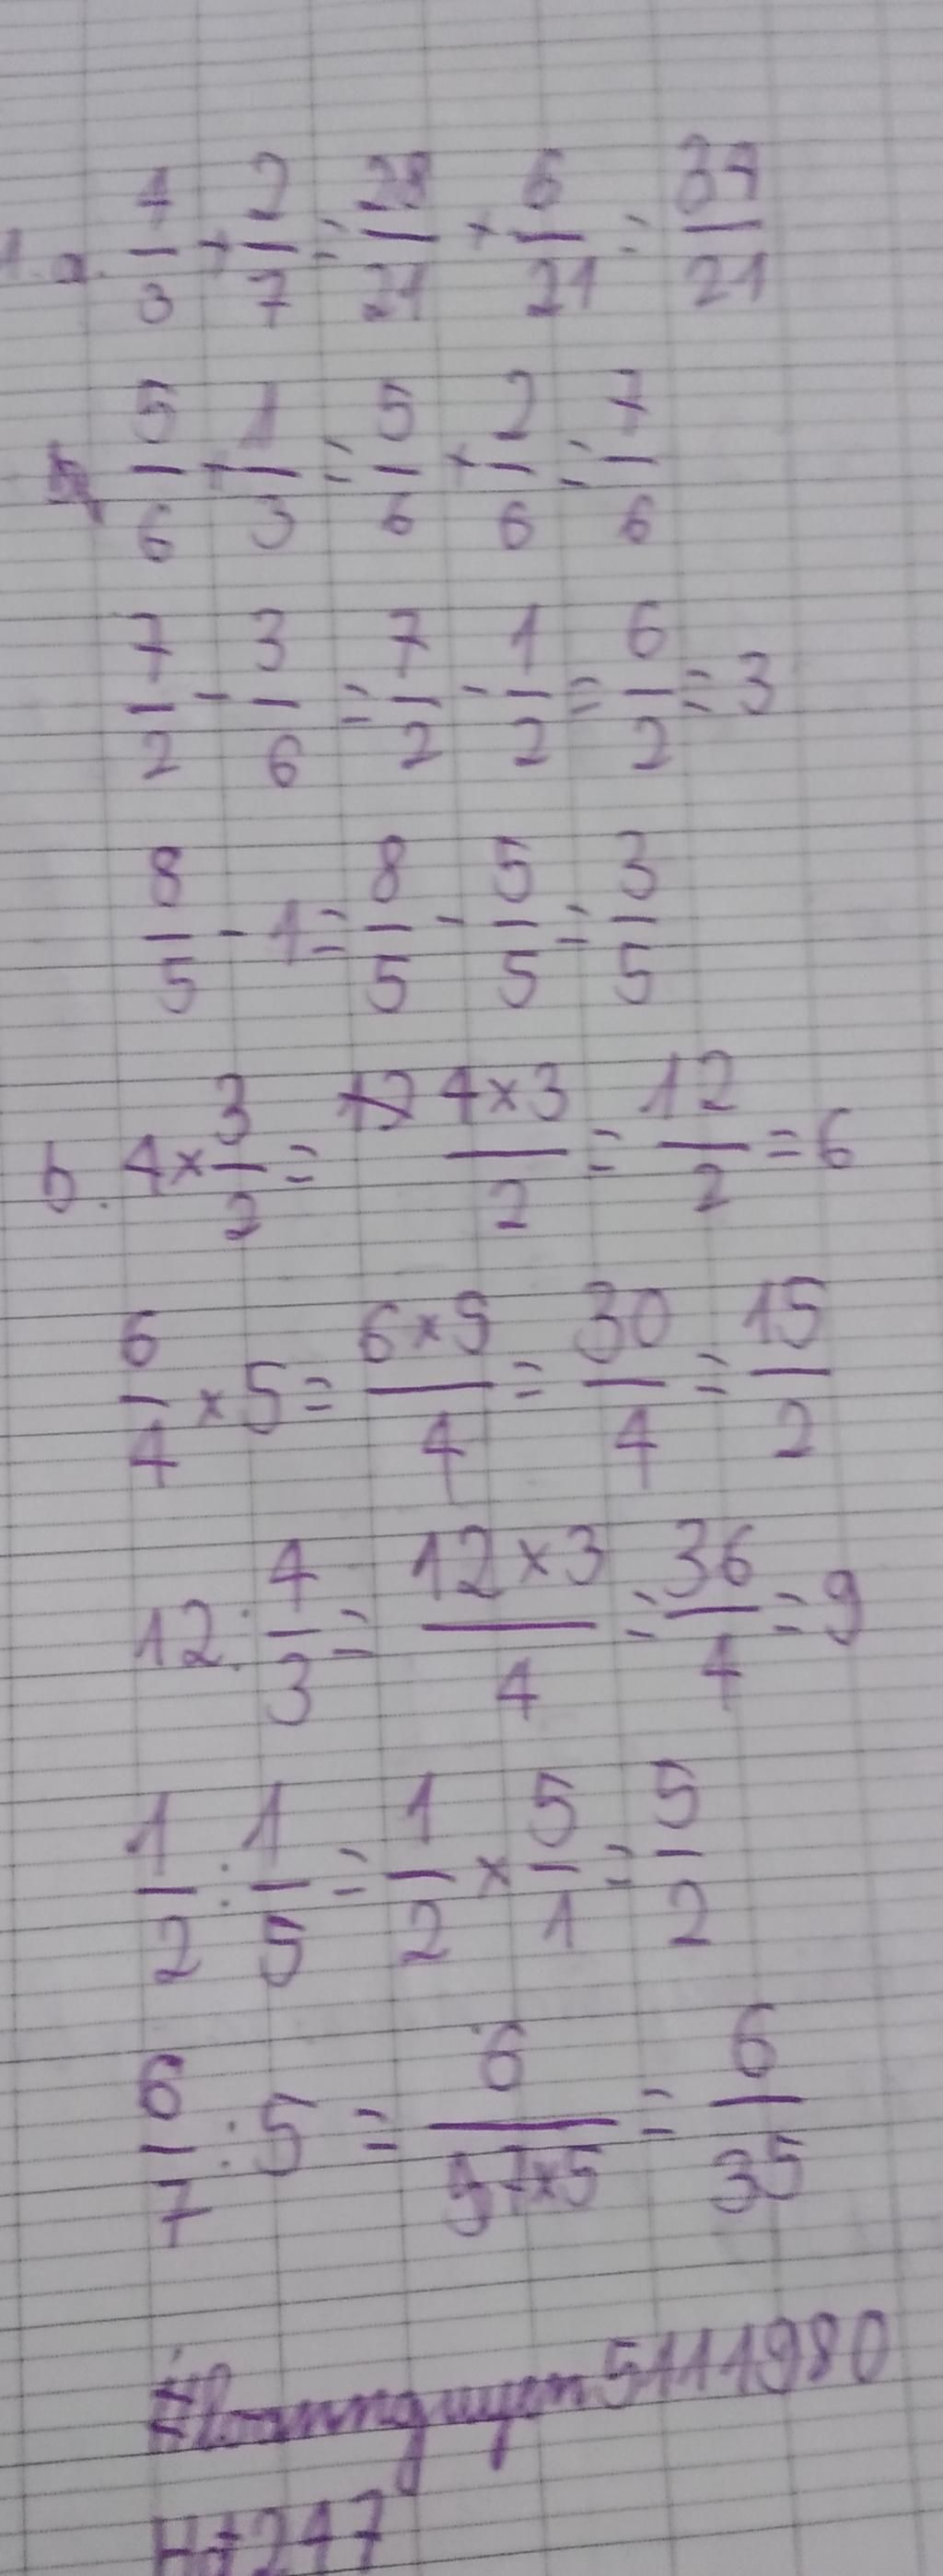 1. a. 4/3 + 2/7 = 28/21 + 6/21 = 34/21
5/6 + 1/3 = 5/6 + 2/6 = 7/6
7/2 - 3/6 = 7/2 - 1/2 = 6/2 = 3
8/5 - 1 = 8/5 - 5/5 = 3/5
b. 4 × 3/2 = 4×3/2 = 12/2 = 6
6/4 × 5 = 6×5/4 = 30/4 = 15/2
12 : 4/3 = 12×3/4 = 36/4 = 9
1/2 : 1/5 = 1/2 × 5/1 = 5/2
6/7 : 5 = 6/7×5 = 6/35